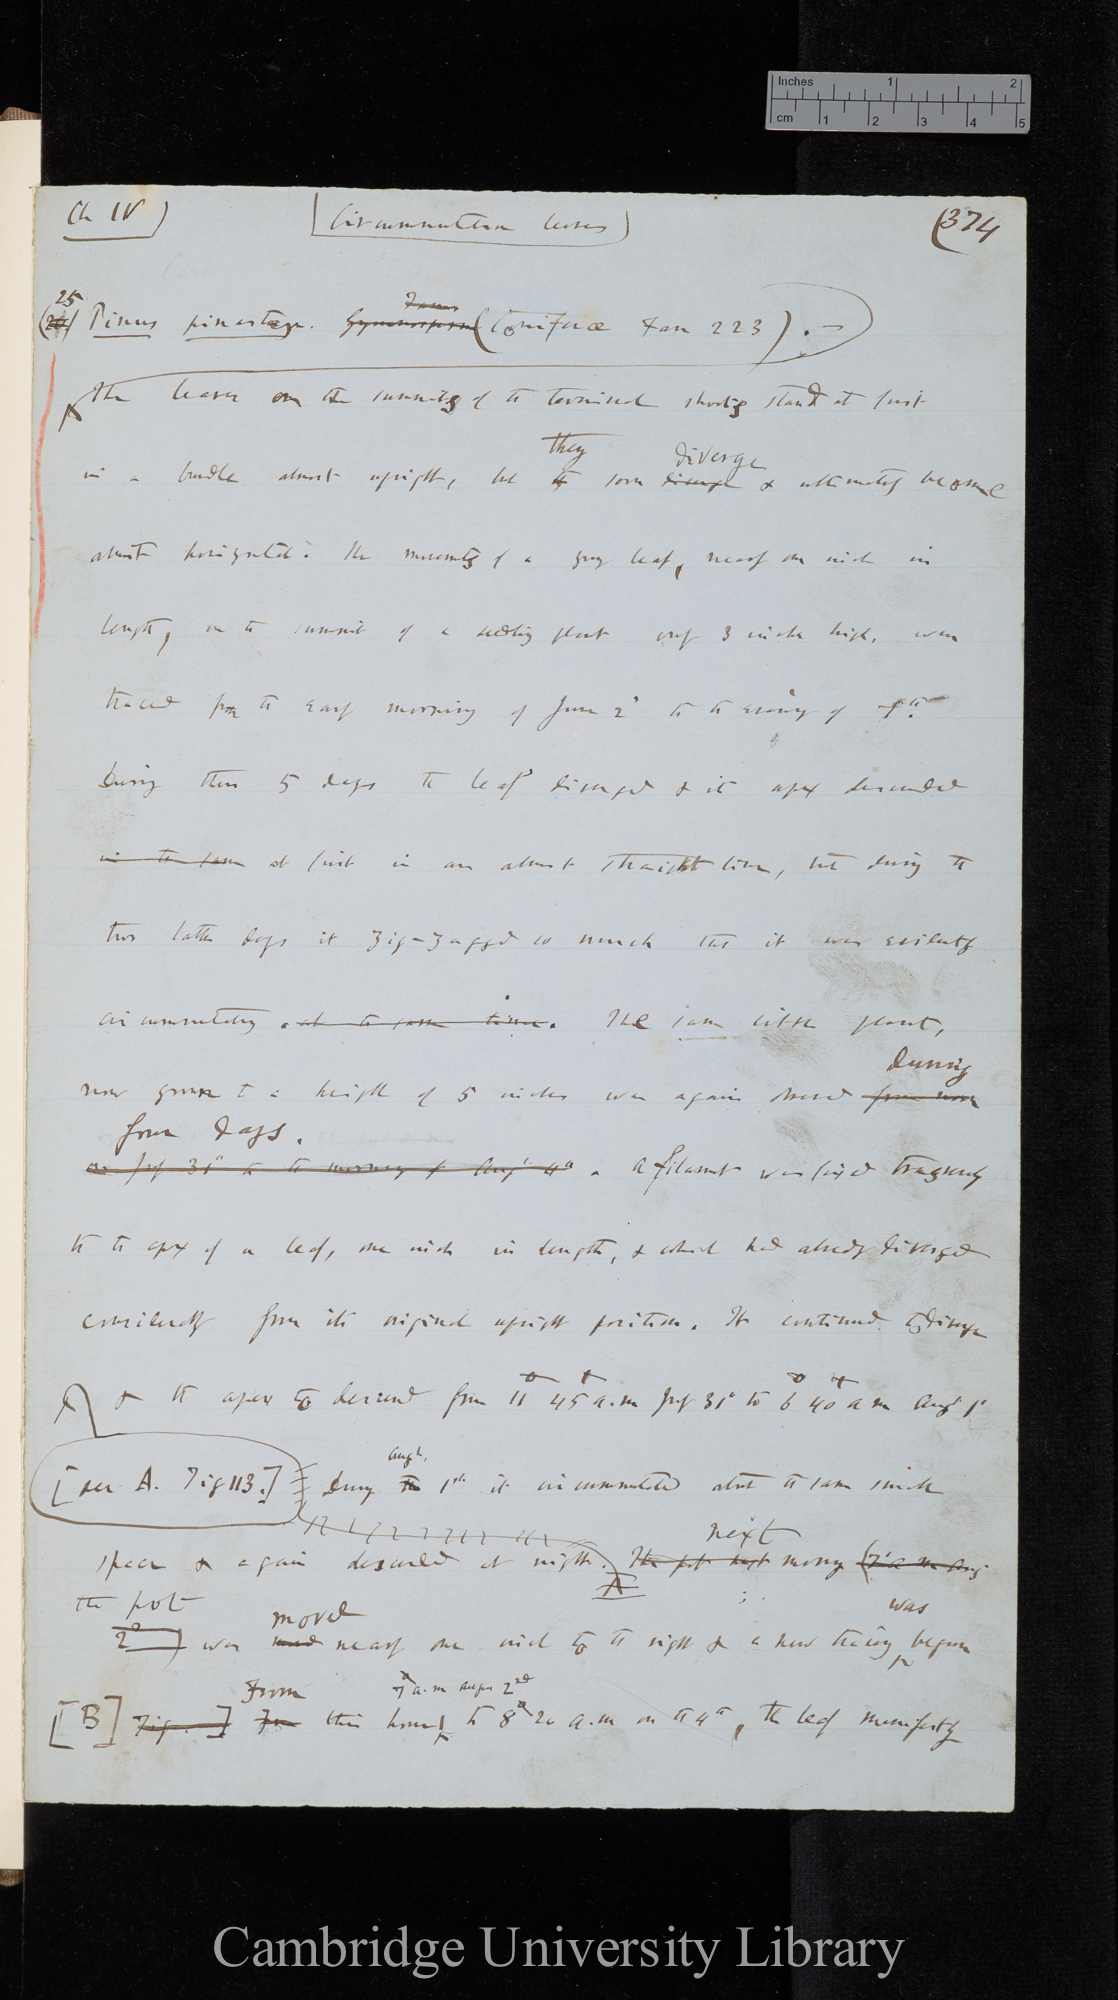 Inches 1 2
cm 1 2 3 4 5
Ch IV)
Circumnutation leaves
(374
25
Pinus pinaster. (Coniferæ Fam 223).—
The leaves on the summits of the terminal shoots stand at first
they diverge
in a bundle almost upright, but soon diverge & ultimately become
almost horizontal. The movements of a young leaf, nearly one inch in
length, on the summit of a seedling plant only 3 inches high, were
traced from the early morning of June 2d to the evening of the
During these 5 days the leaf diverged & its apex descended
in the same at first in an almost straight line, but during the
two latter days it zig-zagged so much that it was evidently
circumnutating. at the same time. The same little plant,
during
now grown to a height of 5 inches was again observed
four days.
on July 31st to the morning of Aug 4th. A filament was fixed transversely
to the apex of a leaf, one inch in length, & which had already diverged
considerably from its original upright position. It continued to diverge
& the apex to descend from 11° 45' a.m July 31st to 6° 40' a m Aug 1st
[see A. Fig 113.]
Aug.
During 1st it circumnutated about the same small
next
space & again descended at night. The pot next morning (7° a m Aug
A
the pot was
moved
2d) was nearly one inch to the right & a new tracing begun
From 7° a.m Aug 2nd
[B] Fig. ] this hour to 8° 20 a.m on the 4th, the leaf manifestly
Cambridge University Library